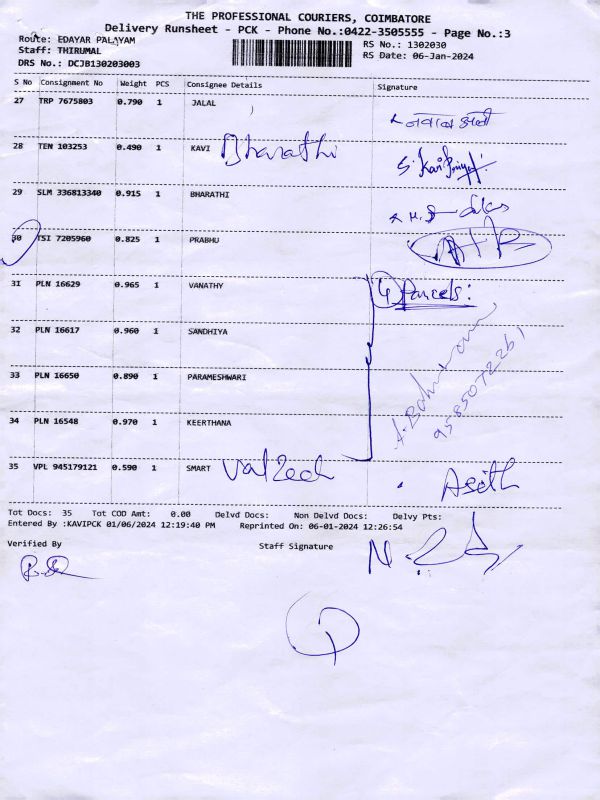 THE PROFESSIONAL COURIERS, COIMBATORE
Delivery Runsheet - PCK - Phone No.:0422-3505555 - Page No.:3
Route: EDAYAR PALAYAM
RS No.: 1302030
Staff: THIRUMAL
RS Date: 06-Jan-2024
DRS No.: DCJB130203003
S No Consignment No Weight PCS Consignee Details Signature
27 TRP 7675803 0.790 1 JALAL
28 TEN 103253 0.490 1 KAVI Bharathi
29 SLM 336813340 0.915 1 BHARATHI
30 TSI 7205960 0.825 1 PRABHU
31 PLN 16629 0.965 1 VANATHY 4 Parcels:
32 PLN 16617 0.960 1 SANDHIYA
33 PLN 16650 0.890 1 PARAMESHWARI
9585072261
34 PLN 16548 0.970 1 KEERTHANA
35 VPL 945179121 0.590 1 SMART Asith
Tot Docs: 35 Tot COD Amt: 0.00 Delvd Docs: Non Delvd Docs: Delvy Pts:
Entered By :KAVIPCK 01/06/2024 12:19:40 PM Reprinted On: 06-01-2024 12:26:54
Verified By Staff Signature